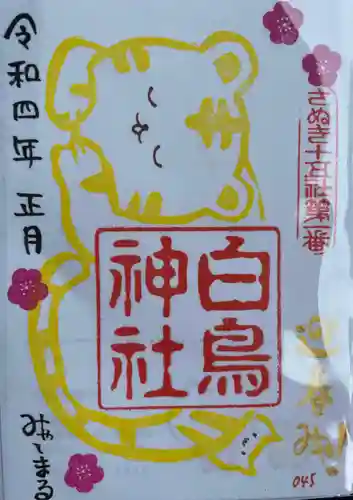 さぬき十五社第一番
白鳥
神社
令和四年 正月
みゃーまる
045